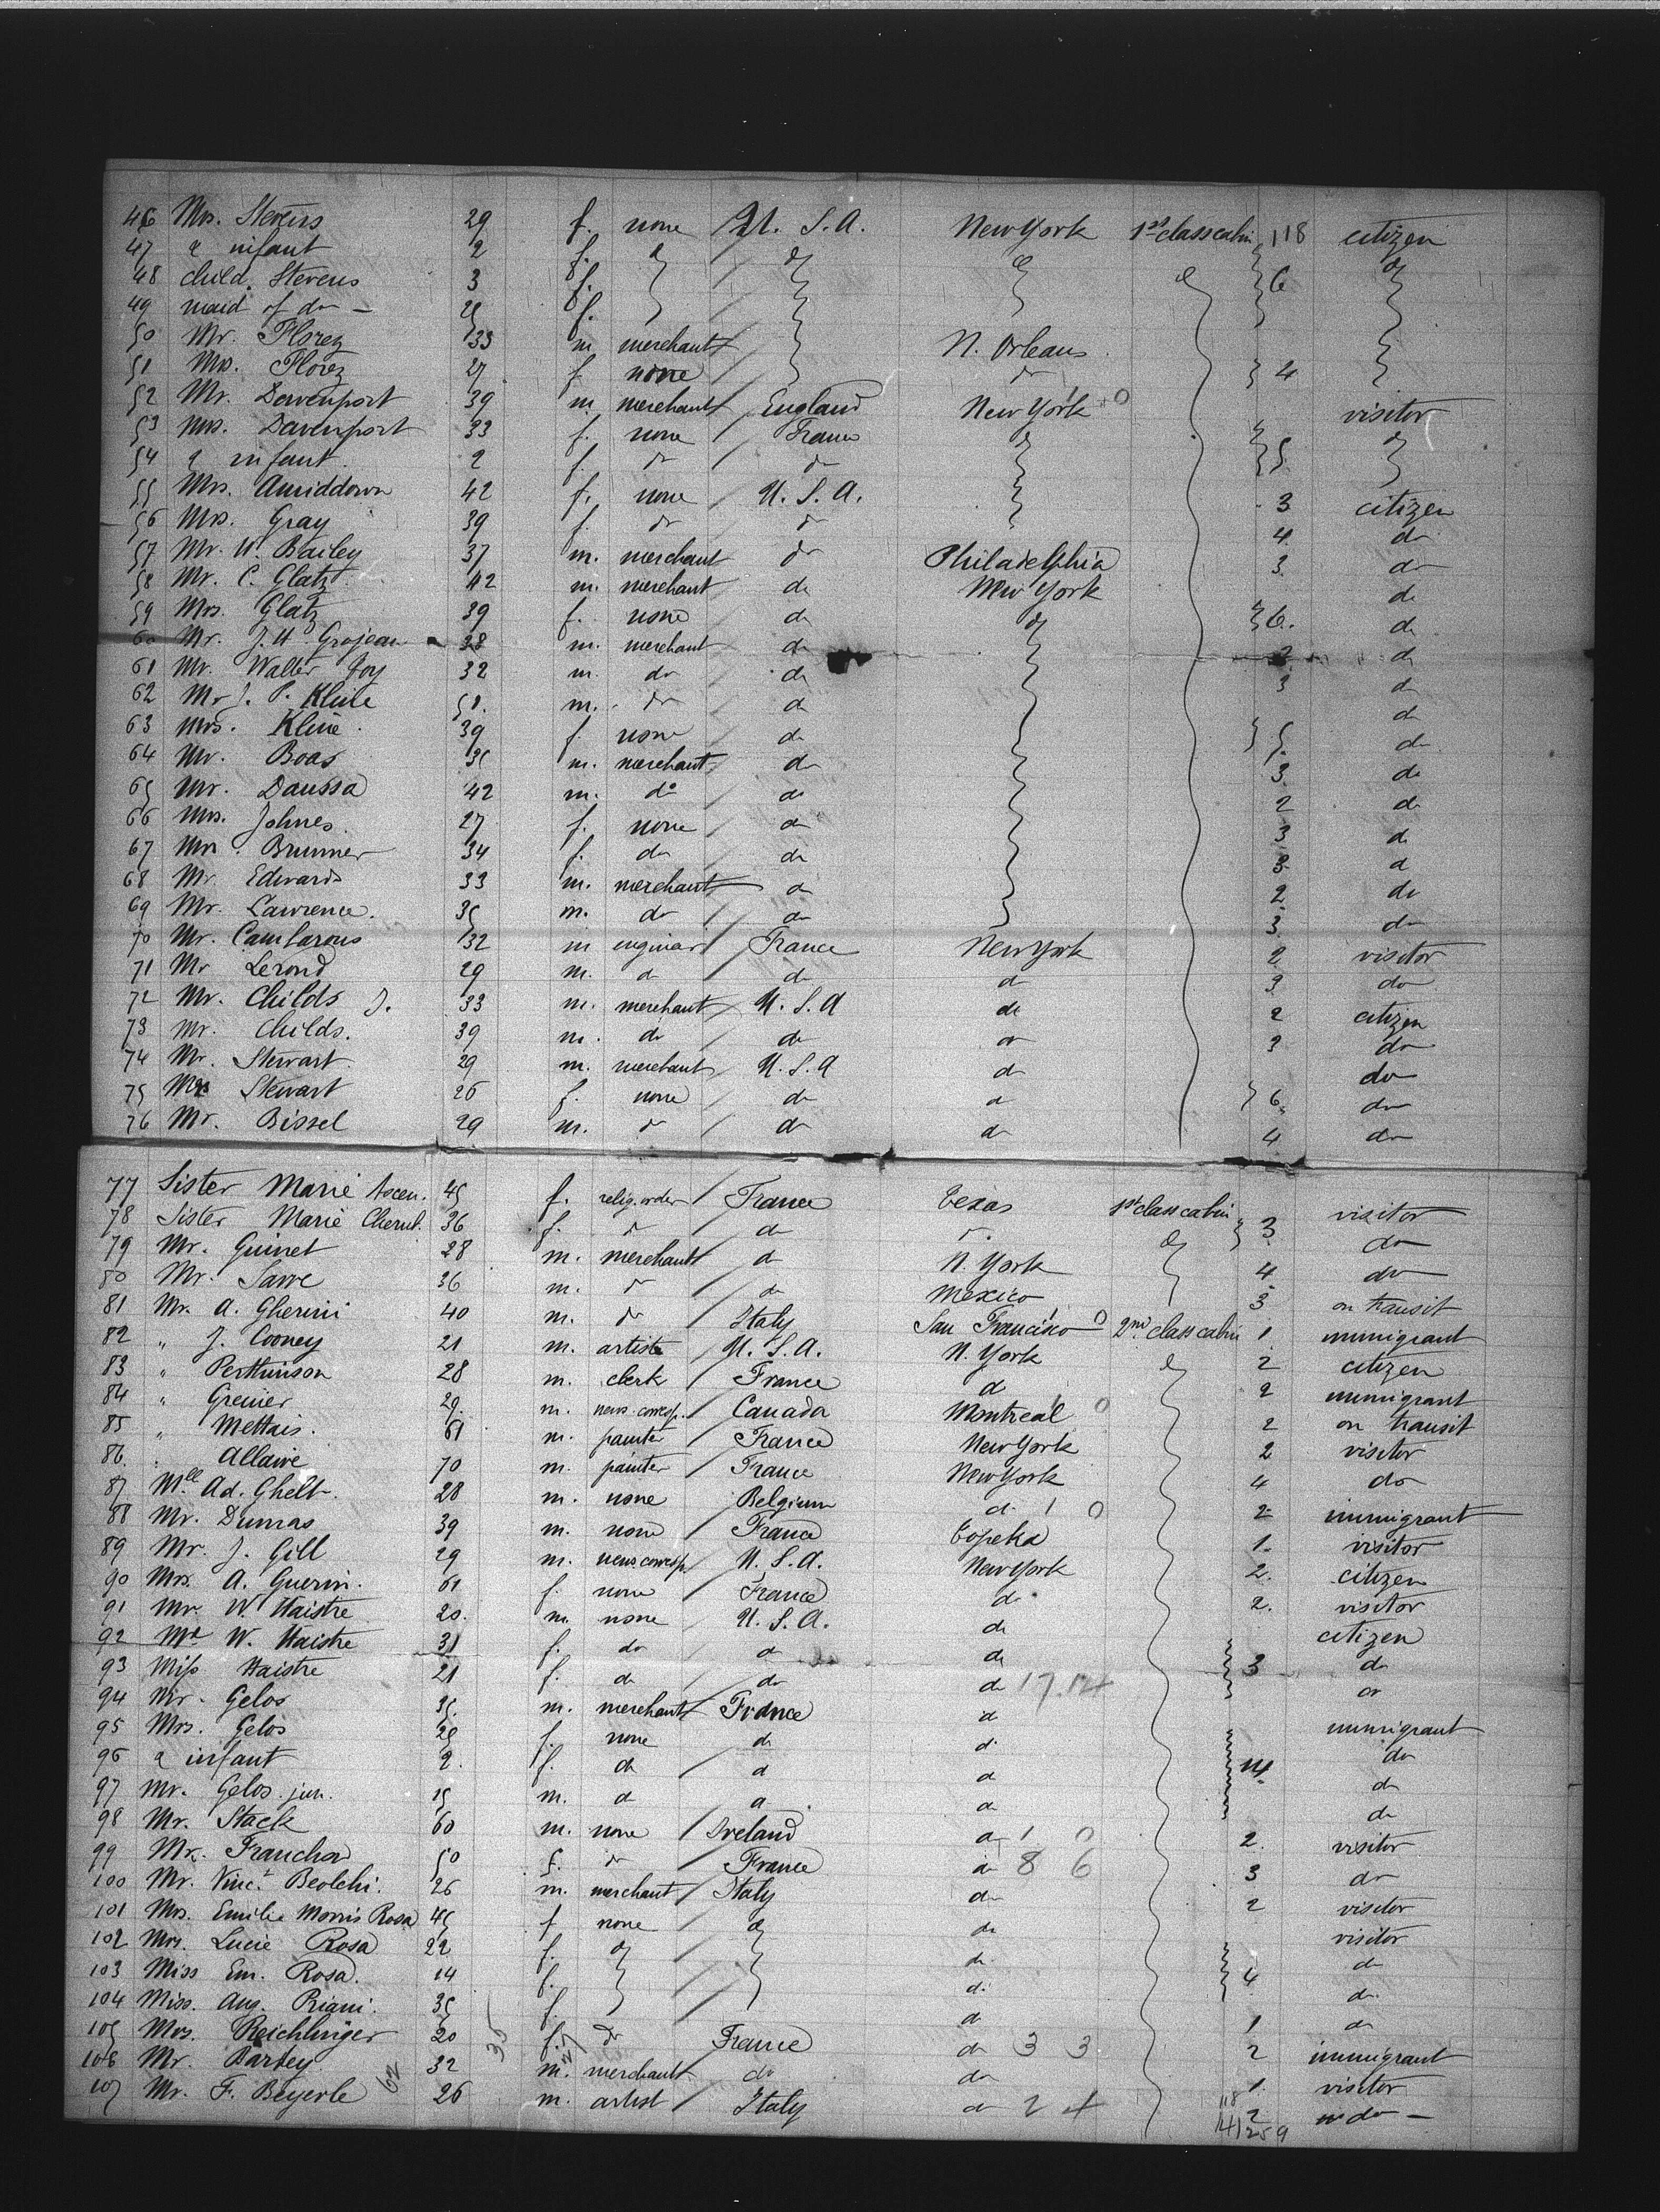 46 Mrs. Stevens 29 f. none U. S. A. New York 1st class cabin 118 citizen
47 & infant 2 f. do do do do
48 child. Stevens 3 f. 6
49 maid of do — f.
50 Mr. Florez 33 m merchant N. Orleans
51 Mrs. Florez 27 f none do 4
52 Mr. Davenport 39 m merchant England New York 0 visitor
53 Mrs. Davenport 33 f. none France do do
54 & infant. 2 f. do do 5
55 Mrs. Amiddown 42 f. none U. S. A. 3 citizen
56 Mrs. Gray 39 f. do do 4 do
57 Mr. W. Bailey 37 m. merchant do Philadelphia 3. do
58 Mr. C. Glatz 42 m. merchant do New York do
59 Mrs. Glatz 39 f. none do do 6. do
60 Mr. J. H. Grojean 38 m. merchant do 2 do
61 Mr. Walter Joy 32 m. do do 3 do
62 Mr J. P. Kline 51. m. do do do
63 Mrs. Kline 39 f none do 5 do
64 Mr. Boas 35 m. merchant do 3. do
65 Mr. Daussa 42 m. do do 2 do
66 Mrs. Johnes 27 f. none do 3 do
67 Mrs. Brunner 34 f. do do 3. do
68 Mr. Edwards 33 m. merchant do 2 do
69 Mr. Lawrence. 35 m. do do 3. do
70 Mr. Cambarous 32 m engineer France New York 2 visitor
71 Mr Lerond 29 m. do do do 3 do
72 Mr. Childs J. 33 m. merchant U. S. A do 2 citizen
73 Mr. Childs. 39 m. do do do 3 do
74 Mr. Stewart 29 m. merchant U. S. A do do
75 Mrs Stewart 26 f. none do do 6. do
76 Mr. Bissel 29 m. do do do 4 do
77 Sister Marie Ascen. 45 f. relig. order France Texas 1st class cabin visitor
78 Sister Marie Cherub. 36 f. do do do 3 do
79 Mr. Guinet 28 m. merchant do N. York do 4 do
80 Mr. Sarre 36 m. do do Mexico 3 on transit
81 Mr. A. Gherini 40 m. do Italy San Francisco 0 2nd class cabin 1 immigrant
82 " J. Cooney 21 m. artiste U. S. A. N. York do 2 citizen
83 " Perthuison 28 m. clerk France do 2 immigrant
84 " Grenier 29. m. news. corresp. Canada Montreal 0 2 on transit
85 " Mettais. 61 m. painter France New York 2 visitor
86. " Allaire 70 m. painter France New York 4 do
87 Mlle Ad. Ghelt. 28 m. none Belgium do 1 0 2 immigrant
88 Mr. Dumas 39 m. none France Topeka 1. visitor
89 Mr. J. Gill 29 m. news. corresp. U. S. A. New York 2. citizen
90 Mrs. A. Guerin. 61 f. none France do 2. visitor
91 Mr. W. Haistre 20. m. none U. S. A. do citizen
92 W. Haistre 31 f. do do do 3 do
93 Miss Haistre 21 f. do do do 17.14 do
94 Mr. Gelos 35. m. merchant France do immigrant
95 Mrs. Gelos f. none do do do
96 & infant 2. f. do do do do
97 Mr. Gelos. jun. 15 m. do do do do
98 Mr. Stack 60 m. none Ireland do 1 0 2. visitor
99 Franchon 50 f. do France do 8 6 3 do
100 Mr. Vinc.t Beolchi. 26 m. merchant Italy do 2 visitor
101 Mrs. Emilie Morris Rosa 45 f none do do visitor
102 Mrs. Lucie Rosa 22 f. do do do
103 Miss Em. Rosa. 14 f. do 4 do
104 Miss. Aug. Riani. 35 f. do 1 do
105 Mrs. Reichlinger 20 35 f. 27 do France do 3 3 2 immigrant
106 Mr. Barbey 62 32 m. merchant do do 1. visitor
107 Mr. F. Beyerle 26 m. artist Italy do 2 4 2 do —
118
141 259